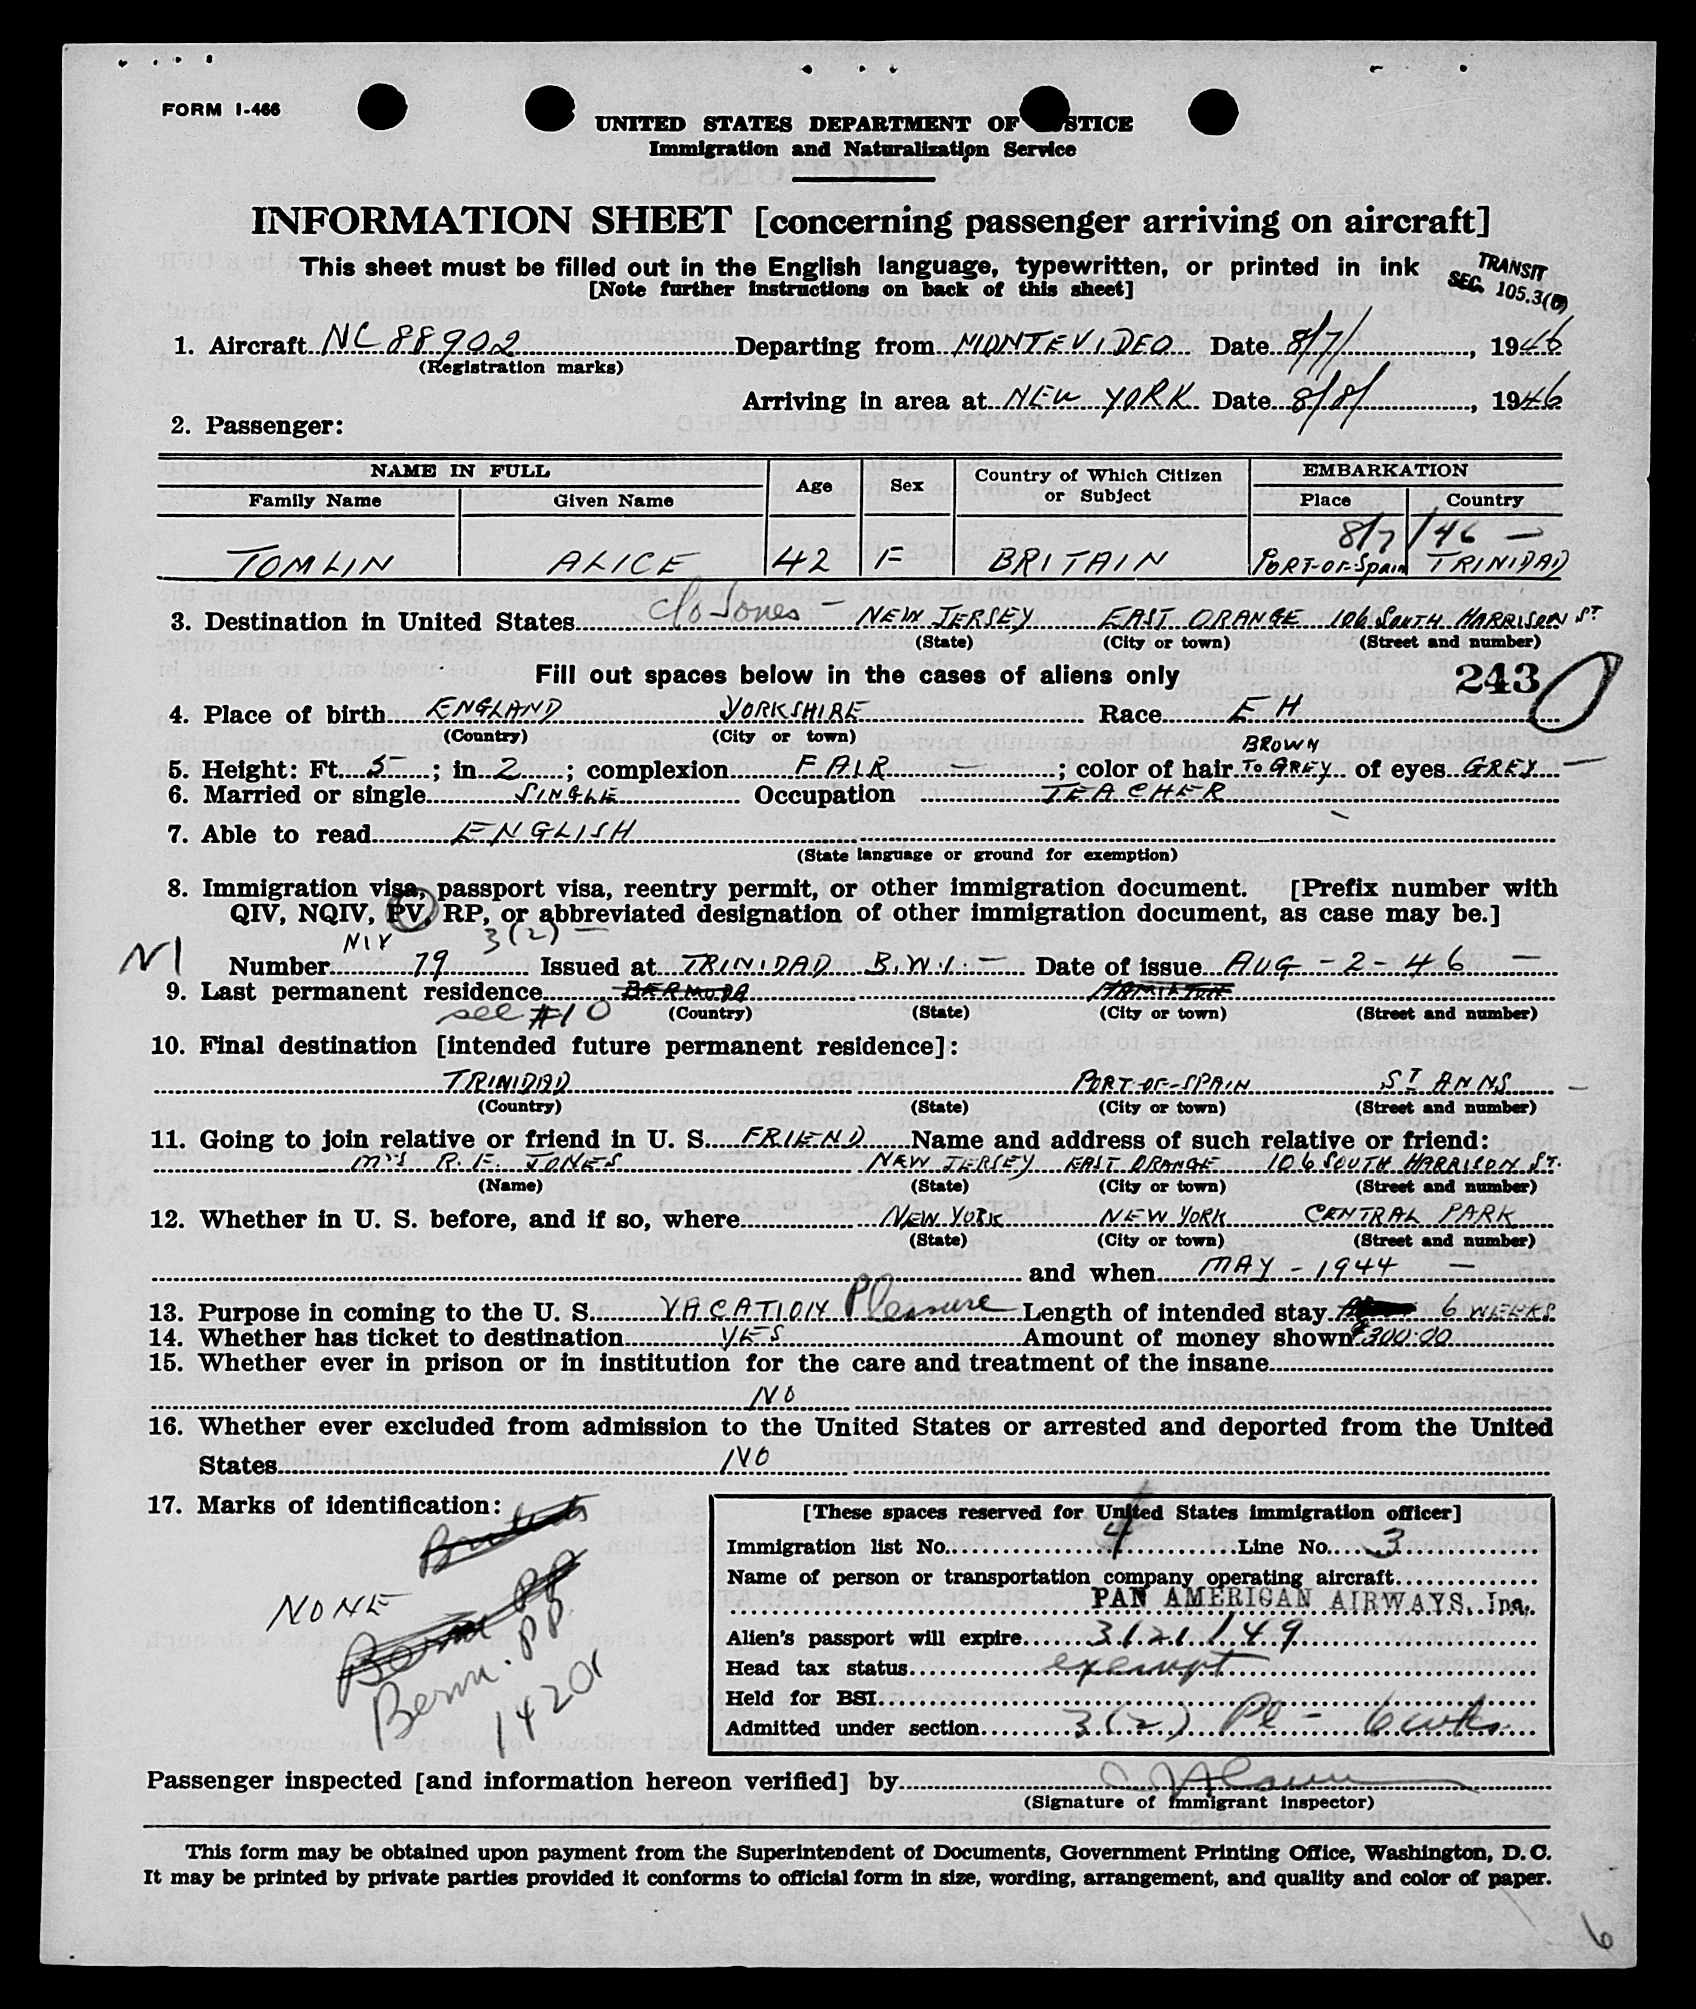 FORM I-466
UNITED STATES DEPARTMENT OF JUSTICE
Immigration and Naturalization Service
INFORMATION SHEET [concerning passenger arriving on aircraft]
This sheet must be filled out in the English language, typewritten, or printed in ink
[Note further instructions on back of this sheet]
TRANSIT
SEC. 105.3
1. Aircraft NC 88902 Departing from MONTEVIDEO Date 8/7/, 1946
(Registration marks)
Arriving in area at NEW YORK Date 8/8/, 1946
2. Passenger:
NAME IN FULL Age Sex Country of Which Citizen or Subject EMBARKATION
Family Name Given Name Place Country
8/7/46 —
TOMLIN ALICE 42 F BRITAIN PORT-OF-Spain TRINIDAD
3. Destination in United States c/o Jones — NEW JERSEY EAST ORANGE 106 SOUTH HARRISON ST
(State) (City or town) (Street and number)
Fill out spaces below in the cases of aliens only 243
4. Place of birth ENGLAND YORKSHIRE Race EH
(Country) (City or town)
BROWN
5. Height: Ft. 5; in. 2; complexion FAIR —; color of hair TO GREY of eyes GREY —
6. Married or single SINGLE Occupation TEACHER
7. Able to read ENGLISH
(State language or ground for exemption)
8. Immigration visa, passport visa, reentry permit, or other immigration document. [Prefix number with
QIV, NQIV, PV, RP, or abbreviated designation of other immigration document, as case may be.]
NIV 3(2) —
NI Number 79 Issued at TRINIDAD B.W.I. — Date of issue AUG - 2 - 46 —
9. Last permanent residence BERMUDA HAMILTON
see #10 (Country) (State) (City or town) (Street and number)
10. Final destination [intended future permanent residence]:
TRINIDAD PORT-OF-SPAIN ST ANNS —
(Country) (State) (City or town) (Street and number)
11. Going to join relative or friend in U. S. FRIEND Name and address of such relative or friend:
Mrs R. F. JONES NEW JERSEY EAST ORANGE 106 SOUTH HARRISON ST.
(Name) (State) (City or town) (Street and number)
12. Whether in U. S. before, and if so, where NEW YORK NEW YORK CENTRAL PARK
(State) (City or town) (Street and number)
and when MAY - 1944 —
13. Purpose in coming to the U. S. VACATION Pleasure Length of intended stay 6 WEEKS
14. Whether has ticket to destination YES Amount of money shown $300.00
15. Whether ever in prison or in institution for the care and treatment of the insane
NO
16. Whether ever excluded from admission to the United States or arrested and deported from the United
States NO
17. Marks of identification:
NONE
Berm. PP
Berm. PP
14201
[These spaces reserved for United States immigration officer]
Immigration list No. 4 Line No. 3
Name of person or transportation company operating aircraft
PAN AMERICAN AIRWAYS, Inc.
Alien's passport will expire 3/21/49
Head tax status exempt
Held for BSI
Admitted under section 3(2) Pl - 6 wks.
Passenger inspected [and information hereon verified] by
(Signature of immigrant inspector)
This form may be obtained upon payment from the Superintendent of Documents, Government Printing Office, Washington, D. C.
It may be printed by private parties provided it conforms to official form in size, wording, arrangement, and quality and color of paper.
6